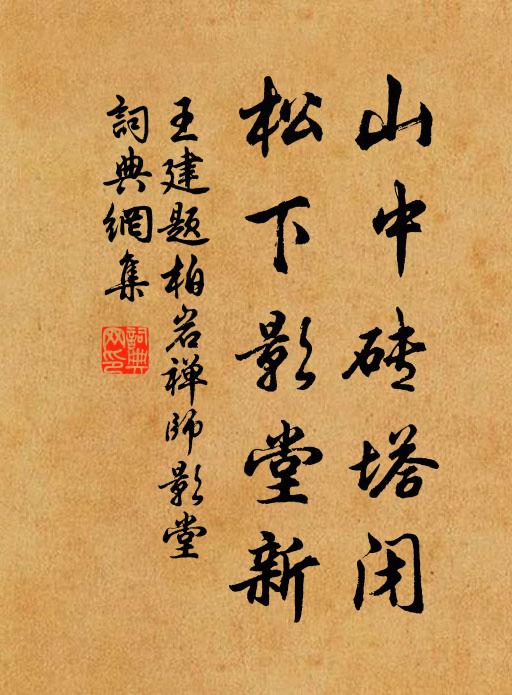 山中砖塔闭
松下影堂新
王建题柏岩禅師影堂
詞典網集
詞典网印